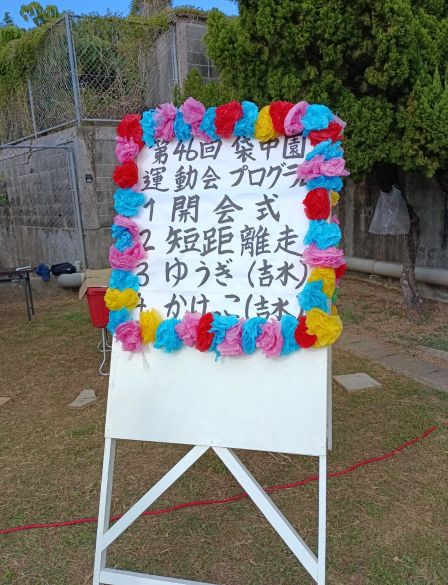 第46回 袋中園
運動会 プログラム
1 開会式
2 短距離走
3 ゆうぎ (吉水)
4 かけっこ (吉水)